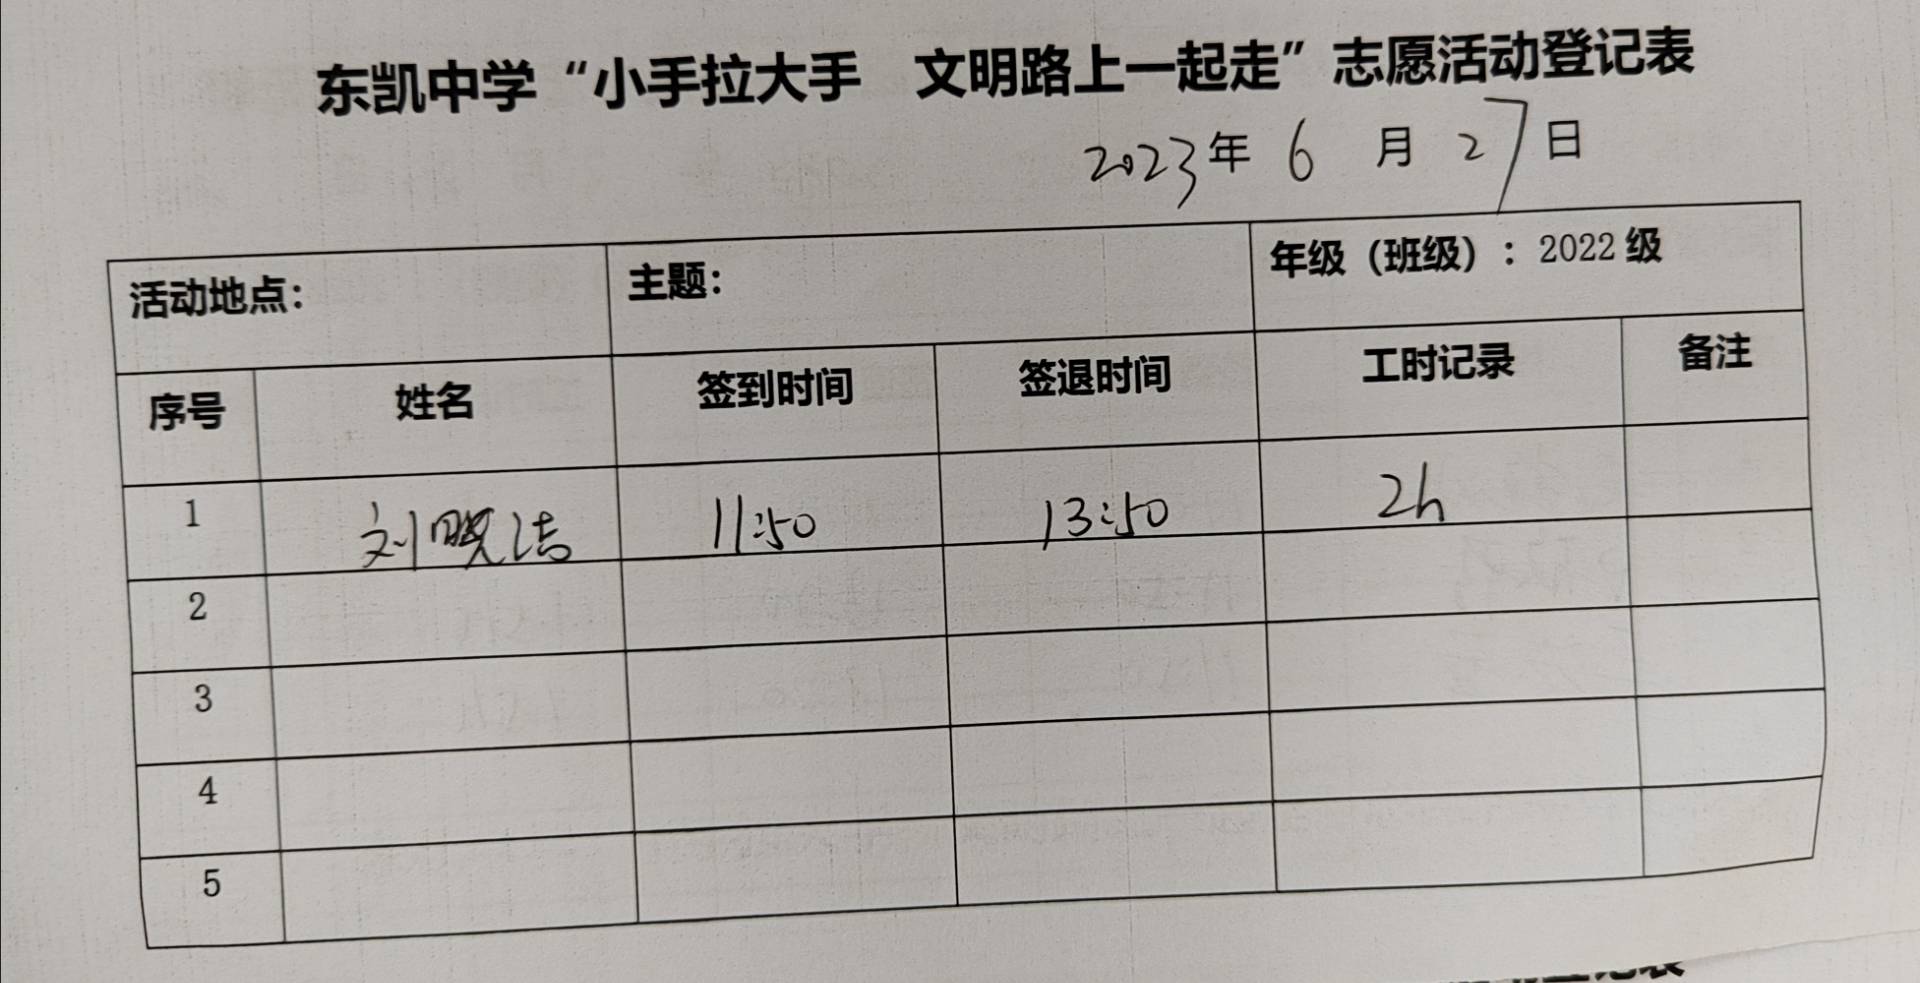 东凯中学“小手拉大手　文明路上一起走”志愿活动登记表
2023年 6 月 27日
活动地点： 主题： 年级（班级）：2022级
序号 姓名 签到时间 签退时间 工时记录 备注
1 刘晓洁 11:50 13:50 2h
2
3
4
5